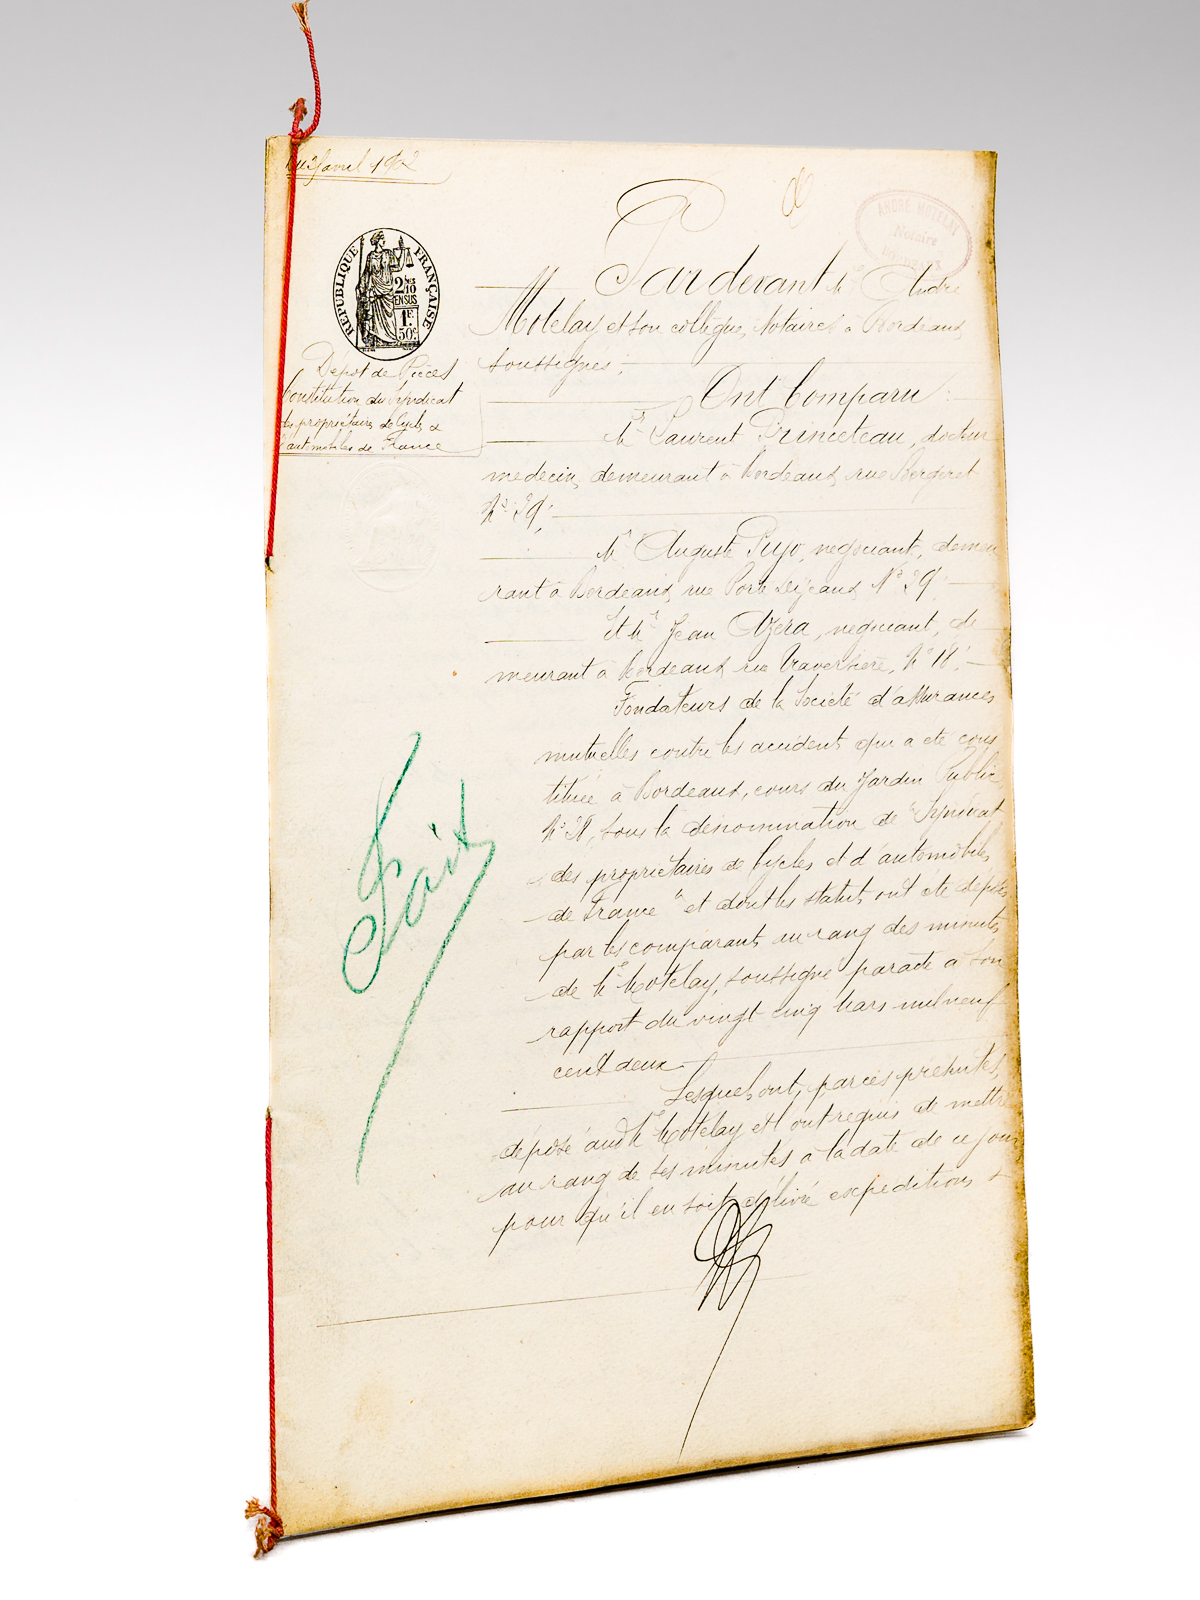 avril 1902
ANDRÉ MOTELAY
Notaire
BORDEAUX
RÉPUBLIQUE FRANÇAISE
2/10
EN SUS
1F
50c
Dépot de Pièces
Constitution du Syndicat
des propriétaires de Cycles &
d'automobiles de France
Pardevant Me André
Motelay et son collègue, Notaires à Bordeaux
soussignés;
Ont Comparu:
Mr Laurent Princeteau, docteur
médecin, demeurant à Bordeaux, rue Bergeret
No 29;
Mr Auguste Pujo, négociant, demeu
rant à Bordeaux, rue Porte Dijeaux No 29;
Et Mr Jean Azéra, négociant, de
meurant à Bordeaux rue Traversière, No 18;
Fondateurs de la Société d'assurances
mutuelles contre les accidents qui a été cons
tituée à Bordeaux, cours du Jardin Public
No, sous la dénomination de "Syndicat
des propriétaires de Cycles et d'automobiles
de France" et dont les statuts ont été déposés
par les comparants au rang des minutes
de Me Motelay, soussigné par acte à son
rapport du vingt cinq Mars mil neuf
cent deux
Lesquels ont, par ces présentes,
déposé audit Me Motelay et l'ont requis de mettre
au rang de ses minutes à la date de ce jour
pour qu'il en soit délivré expéditions &
Fait